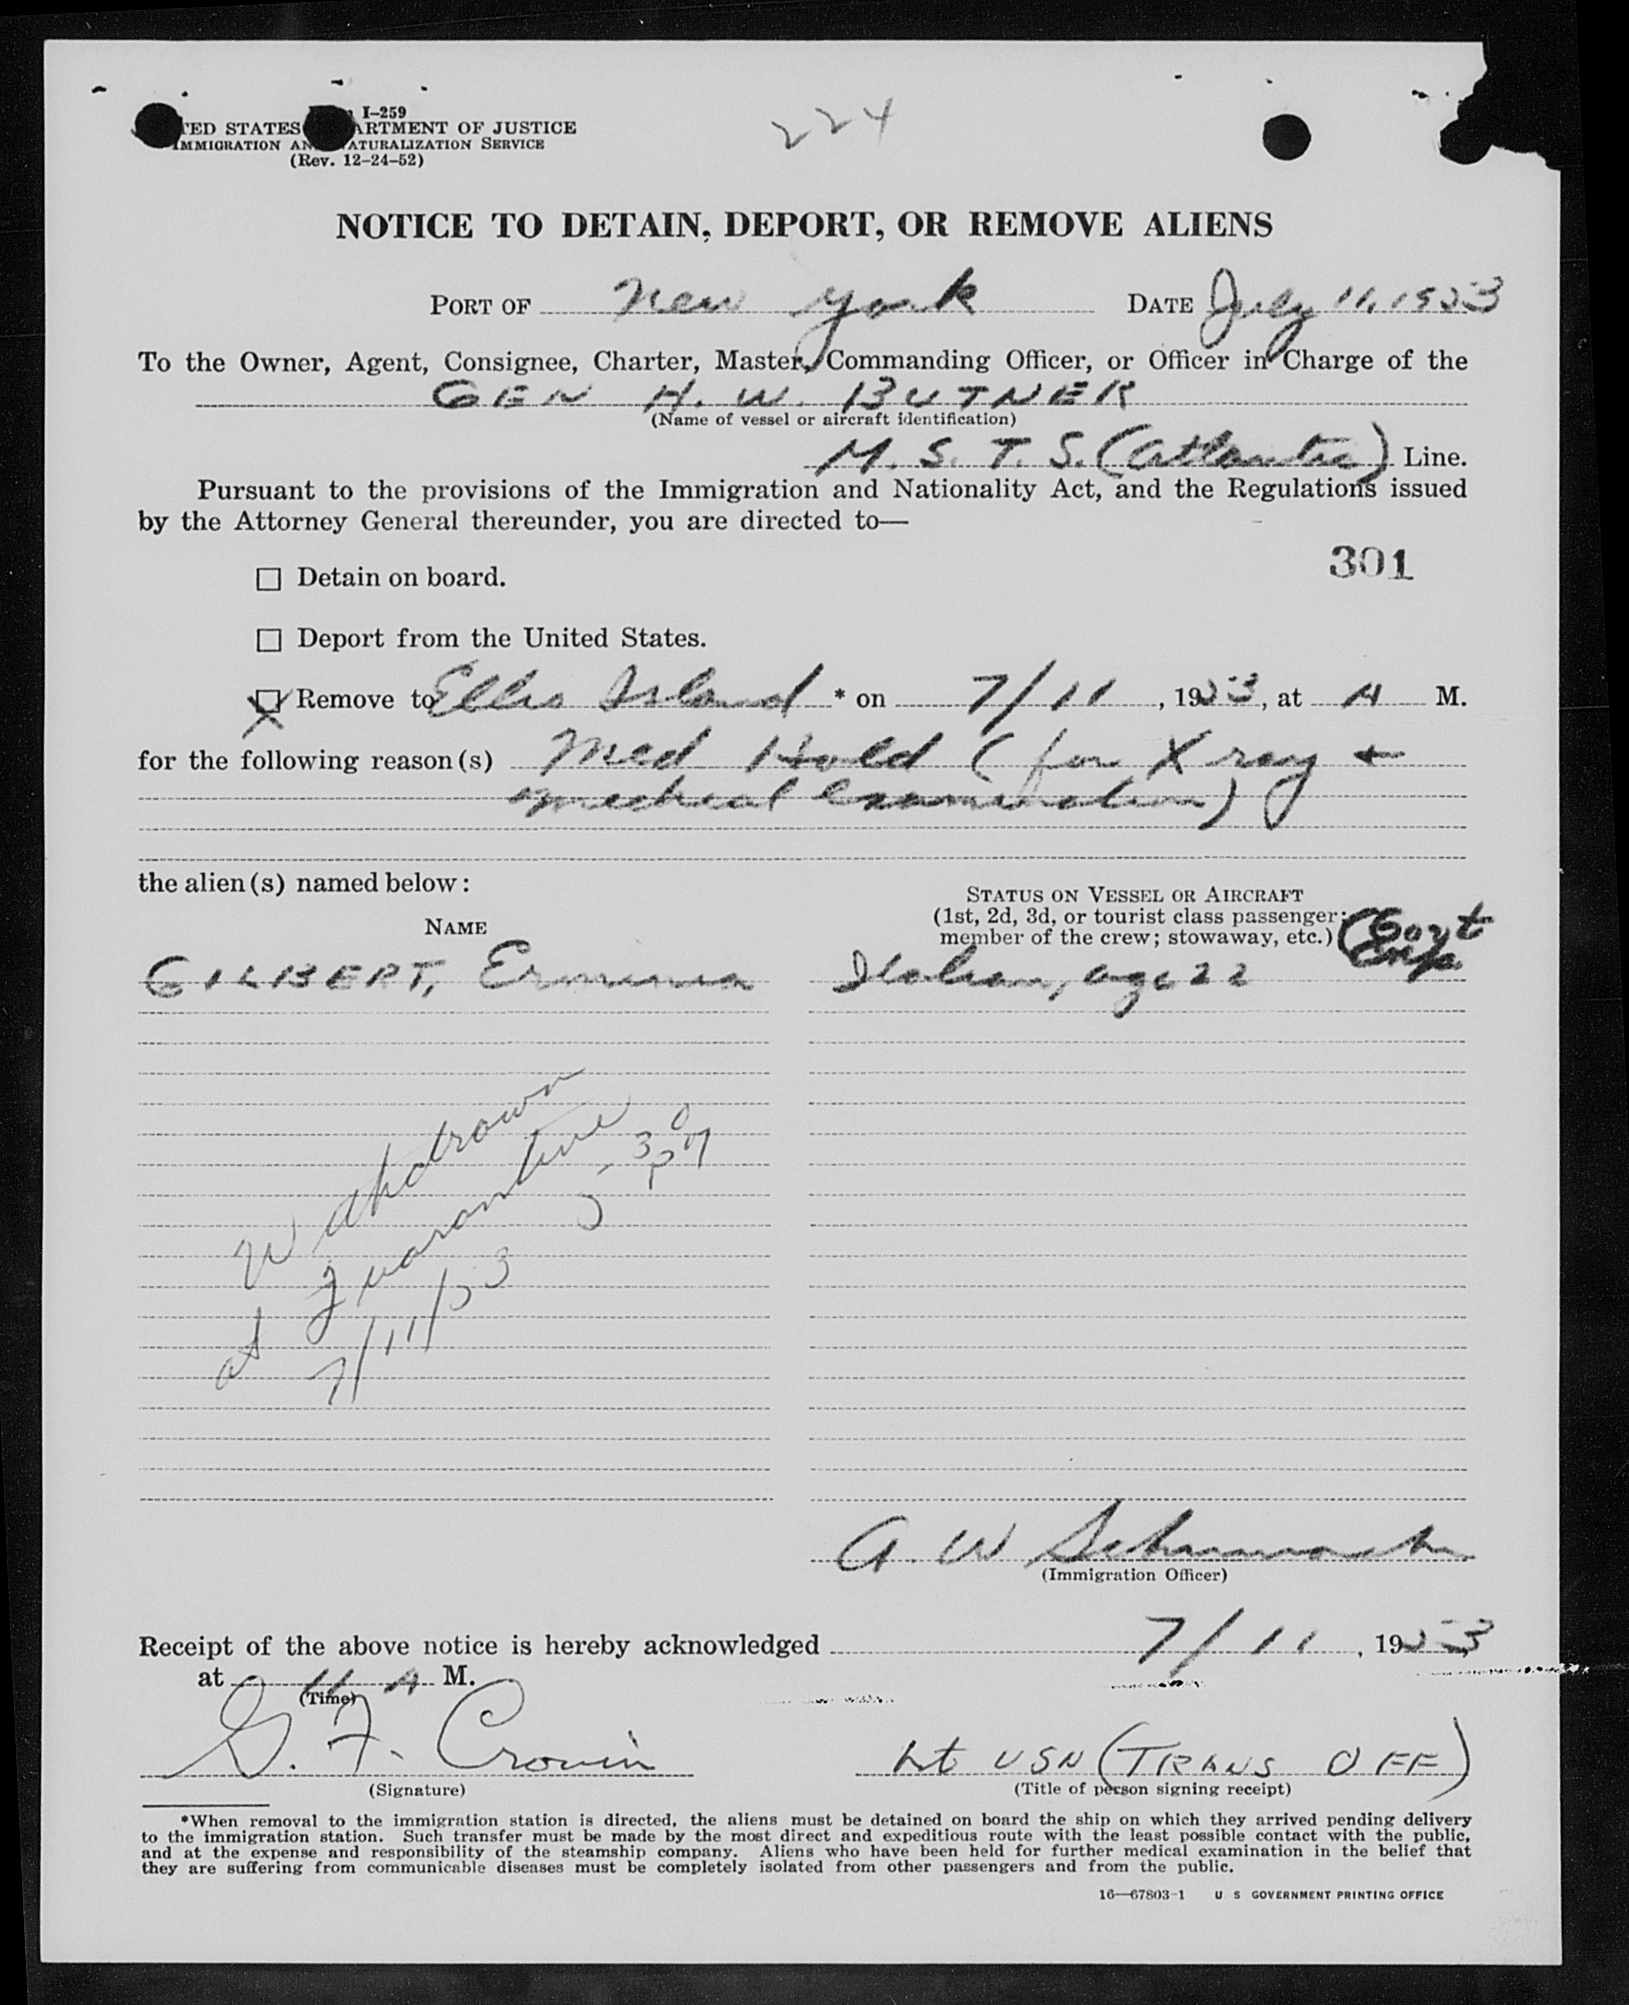 I-259
TED STATES ARTMENT OF JUSTICE
IMMIGRATION AN ATURALIZATION SERVICE
(Rev. 12-24-52)
224
NOTICE TO DETAIN, DEPORT, OR REMOVE ALIENS
PORT OF New York DATE July 11, 1953
To the Owner, Agent, Consignee, Charter, Master, Commanding Officer, or Officer in Charge of the
GEN H. W. BUTNER
(Name of vessel or aircraft identification)
M. S. T. S. (Atlantic) Line.
Pursuant to the provisions of the Immigration and Nationality Act, and the Regulations issued
by the Attorney General thereunder, you are directed to—
301
☐ Detain on board.
☐ Deport from the United States.
☒ Remove to Ellis Island * on 7/11, 1953, at A M.
for the following reason(s) Med Hold (for X ray +
medical examination)
the alien(s) named below:
STATUS ON VESSEL OR AIRCRAFT
(1st, 2d, 3d, or tourist class passenger;
member of the crew; stowaway, etc.) (Govt
NAME
GILBERT, Erminia Italian, age 22
Withdrawn
at Quarantine
7/11/53 530 pm
A. W. Schumacher
(Immigration Officer)
Receipt of the above notice is hereby acknowledged 7/11, 1953
at 11 A M.
(Time)
G. F. Cronin Lt USN (TRANS OFF)
(Signature) (Title of person signing receipt)
*When removal to the immigration station is directed, the aliens must be detained on board the ship on which they arrived pending delivery
to the immigration station. Such transfer must be made by the most direct and expeditious route with the least possible contact with the public,
and at the expense and responsibility of the steamship company. Aliens who have been held for further medical examination in the belief that
they are suffering from communicable diseases must be completely isolated from other passengers and from the public.
16—67803-1 U S GOVERNMENT PRINTING OFFICE